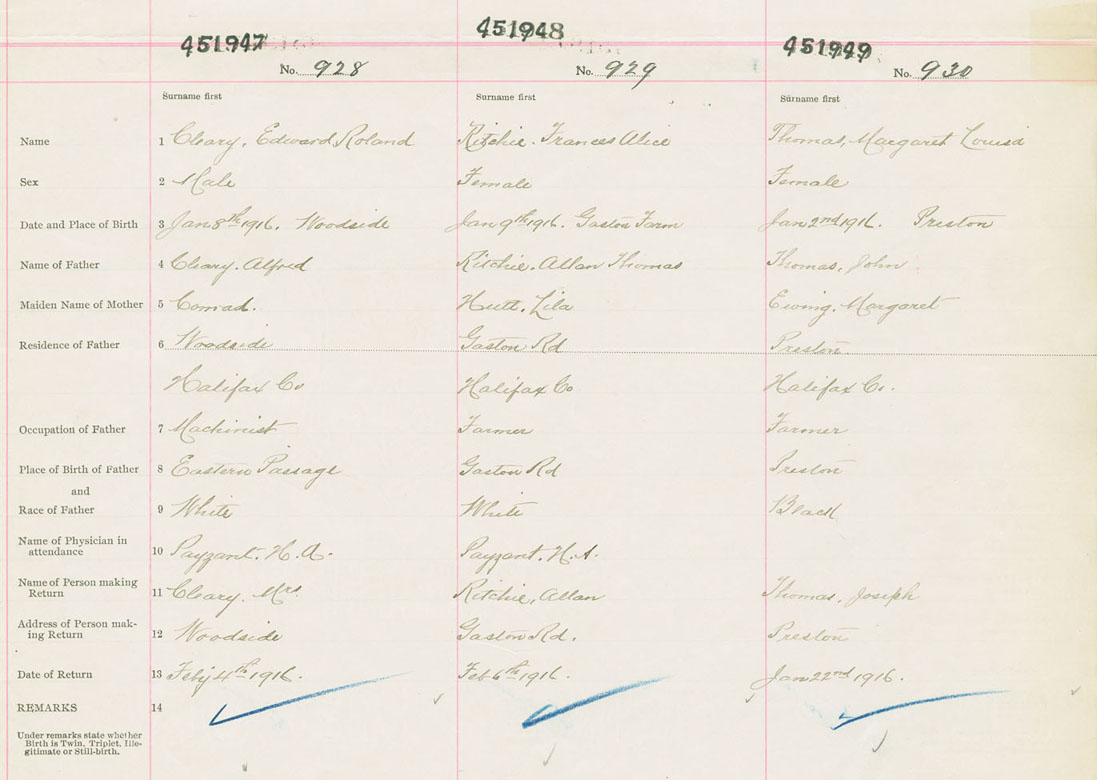 451947 451948 451949
No. 928 No. 929 No. 930
Surname first Surname first Surname first
Name 1 Cleary, Edward Roland Ritchie, Frances Alice Thomas, Margaret Louisa
Sex 2 Male Female Female
Date and Place of Birth 3 Jan 8th 1916. Woodside Jan 9th 1916. Gaston Farm Jan 2nd 1916. Preston
Name of Father 4 Cleary, Alfred Ritchie, Allan Thomas Thomas, John
Maiden Name of Mother 5 Conrad. Hutt, Lila Ewing, Margaret
Residence of Father 6 Woodside Gaston Rd Preston
Halifax Co Halifax Co Halifax Co.
Occupation of Father 7 Machinist Farmer Farmer
Place of Birth of Father 8 Eastern Passage Gaston Rd Preston
and
Race of Father 9 White White Black
Name of Physician in
attendance 10 Payzant, H. A. Payzant, H. A.
Name of Person making
Return 11 Cleary, Mrs. Ritchie, Allan Thomas, Joseph
Address of Person mak-
ing Return 12 Woodside Gaston Rd. Preston
Date of Return 13 Feby 4th 1916. Feb 6th 1916. Jan 22nd 1916.
REMARKS 14
Under remarks state whether
Birth is Twin, Triplet, Ille-
gitimate or Still-birth.